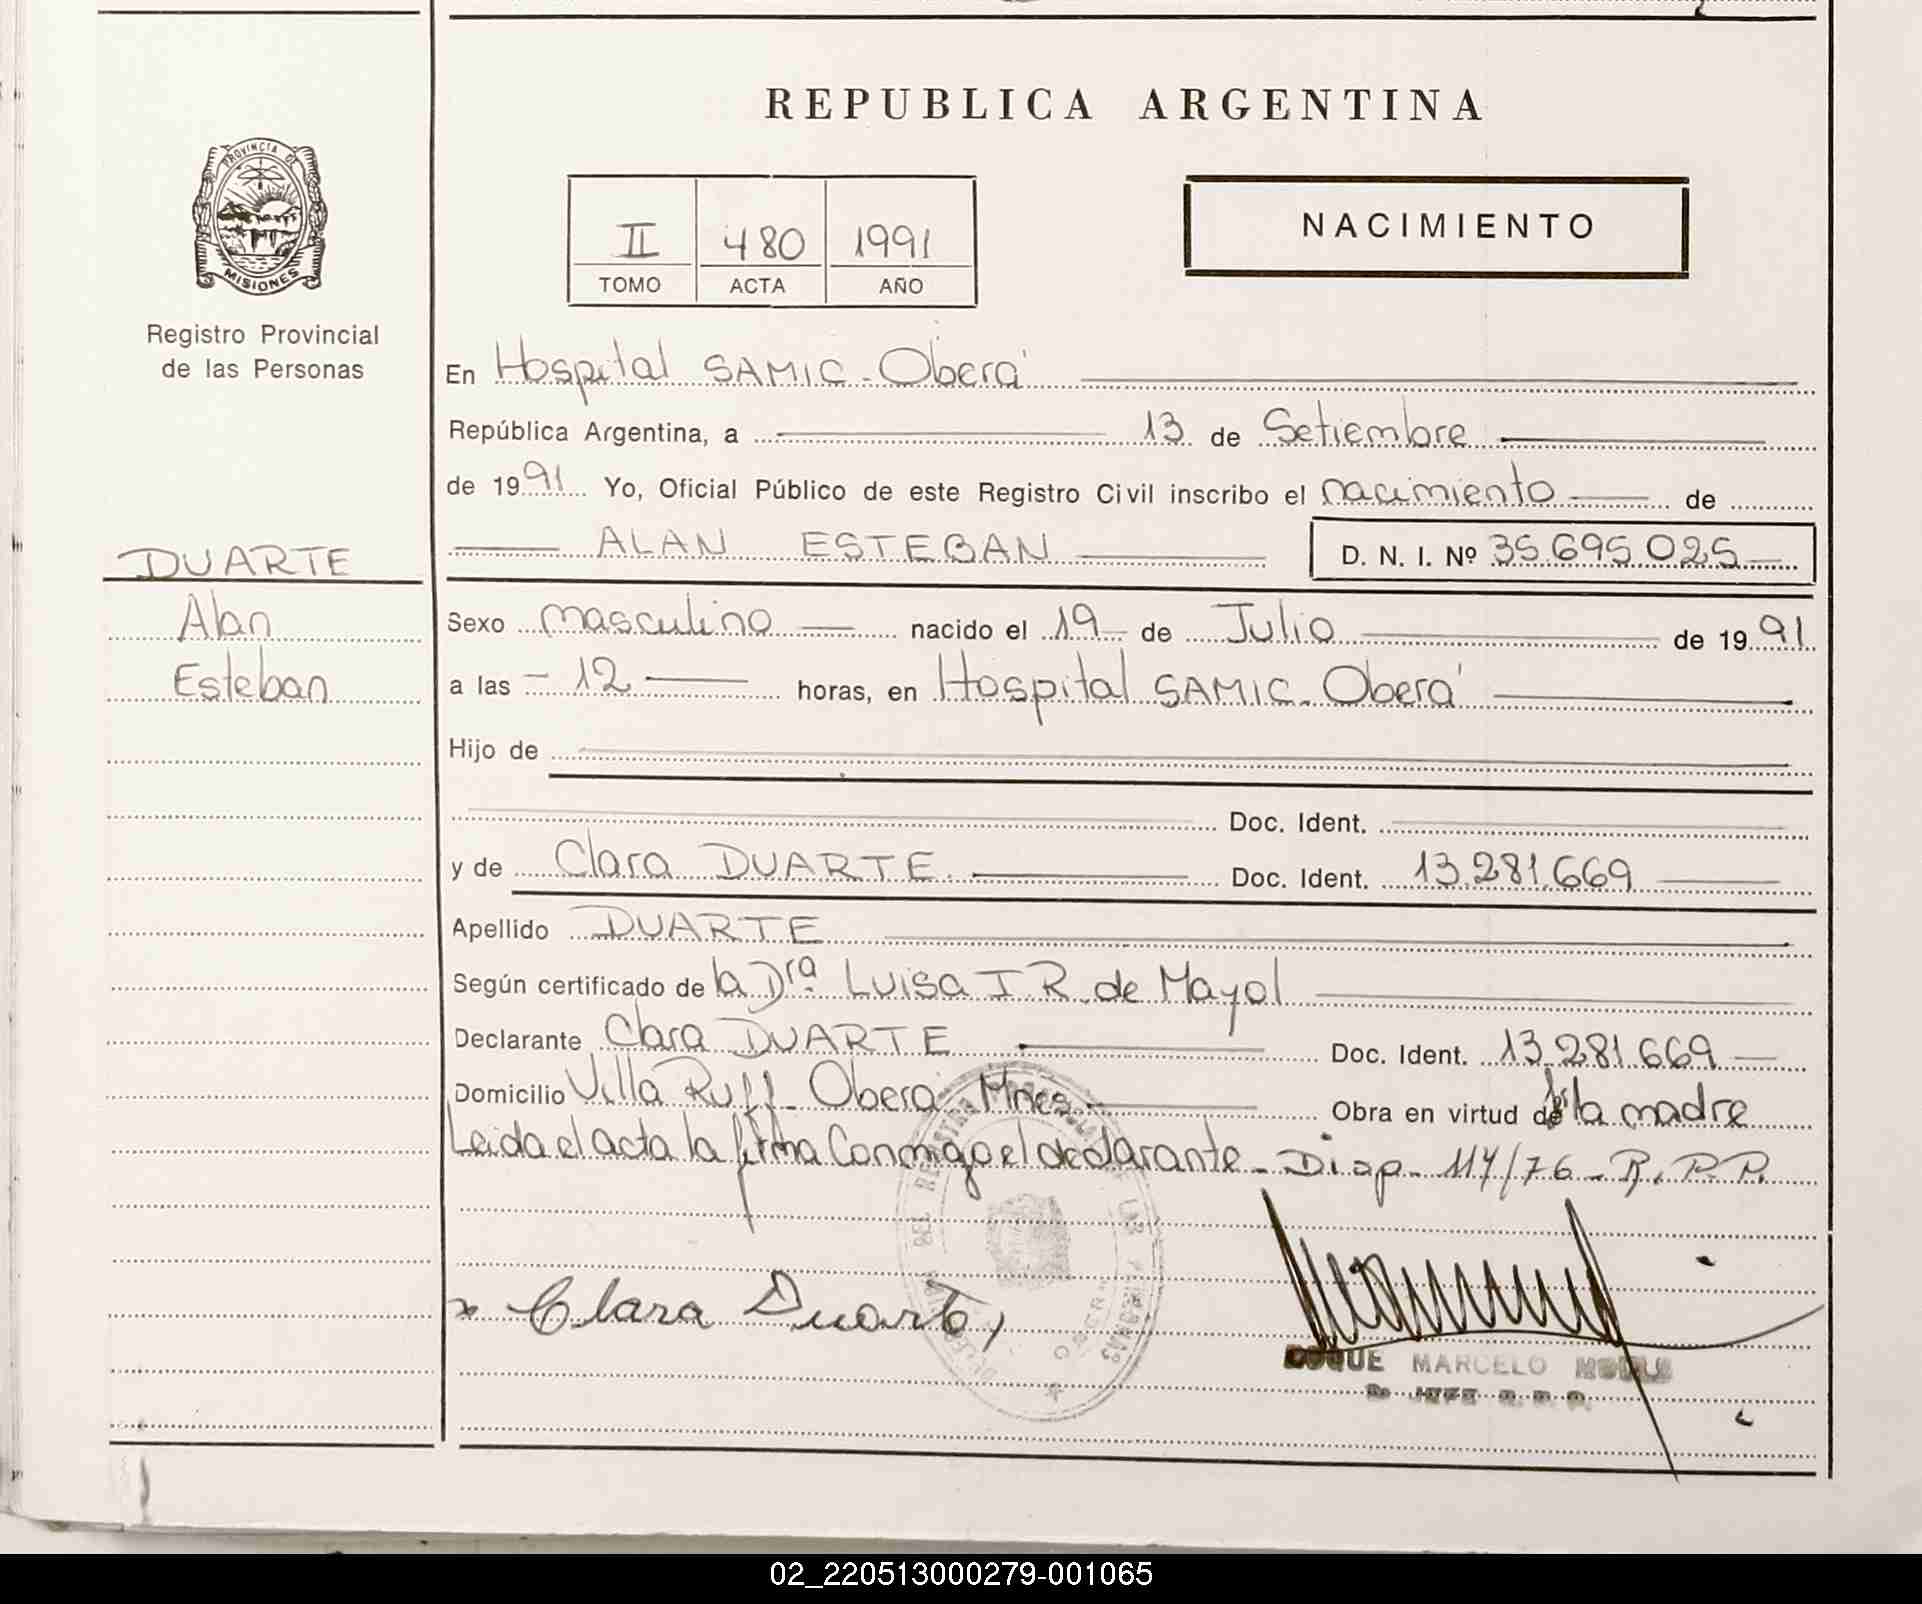 REPUBLICA ARGENTINA
PROVINCIA DE
MISIONES
Registro Provincial
de las Personas
II 480 1991
TOMO ACTA AÑO
NACIMIENTO
En Hospital SAMIC - Oberá
República Argentina, a 13 de Setiembre
de 1991 Yo, Oficial Público de este Registro Civil inscribo el nacimiento de
ALAN ESTEBAN D. N. I. Nº 35.695.025
DUARTE
Alan
Esteban
Sexo masculino nacido el 19 de Julio de 1991
a las 12 horas, en Hospital SAMIC - Oberá
Hijo de
Doc. Ident.
y de Clara DUARTE. Doc. Ident. 13.281.669
Apellido DUARTE
Según certificado de la Dra. Luisa I R. de Mayol
Declarante Clara DUARTE Doc. Ident. 13.281.669
Domicilio Villa Ruff - Oberá Mnes. Obra en virtud de la madre
Leida el acta la firma Conmigo el declarante - Disp - 114/76 - R. P. P.
x Clara Duarte
DEL REGISTRO LAS
ROQUE MARCELO
JEFE R. P. P.
02_220513000279-001065